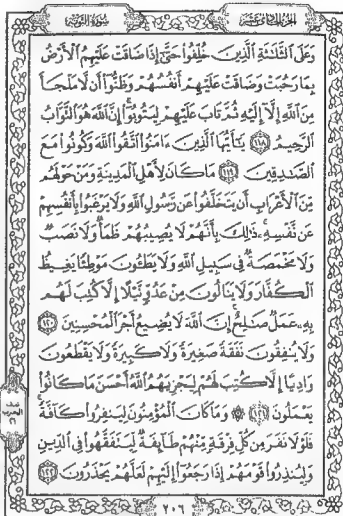 الجزء الحادي عشر سورة التوبة
وَعَلَى ٱلثَّلَٰثَةِ ٱلَّذِينَ خُلِّفُوا۟ حَتَّىٰٓ إِذَا ضَاقَتْ عَلَيْهِمُ ٱلْأَرْضُ
بِمَا رَحُبَتْ وَضَاقَتْ عَلَيْهِمْ أَنفُسُهُمْ وَظَنُّوٓا۟ أَن لَّا مَلْجَأَ
مِنَ ٱللَّهِ إِلَّآ إِلَيْهِ ثُمَّ تَابَ عَلَيْهِمْ لِيَتُوبُوٓا۟ إِنَّ ٱللَّهَ هُوَ ٱلتَّوَّابُ
ٱلرَّحِيمُ ١١٨ يَٰٓأَيُّهَا ٱلَّذِينَ ءَامَنُوا۟ ٱتَّقُوا۟ ٱللَّهَ وَكُونُوا۟ مَعَ
ٱلصَّٰدِقِينَ ١١٩ مَا كَانَ لِأَهْلِ ٱلْمَدِينَةِ وَمَنْ حَوْلَهُم
مِّنَ ٱلْأَعْرَابِ أَن يَتَخَلَّفُوا۟ عَن رَّسُولِ ٱللَّهِ وَلَا يَرْغَبُوا۟ بِأَنفُسِهِمْ
عَن نَّفْسِهِۦ ذَٰلِكَ بِأَنَّهُمْ لَا يُصِيبُهُمْ ظَمَأٌ وَلَا نَصَبٌ
وَلَا مَخْمَصَةٌ فِى سَبِيلِ ٱللَّهِ وَلَا يَطَـُٔونَ مَوْطِئًا يَغِيظُ
ٱلْكُفَّارَ وَلَا يَنَالُونَ مِنْ عَدُوٍّ نَّيْلًا إِلَّا كُتِبَ لَهُم
بِهِۦ عَمَلٌ صَٰلِحٌ إِنَّ ٱللَّهَ لَا يُضِيعُ أَجْرَ ٱلْمُحْسِنِينَ ١٢٠
وَلَا يُنفِقُونَ نَفَقَةً صَغِيرَةً وَلَا كَبِيرَةً وَلَا يَقْطَعُونَ
وَادِيًا إِلَّا كُتِبَ لَهُمْ لِيَجْزِيَهُمُ ٱللَّهُ أَحْسَنَ مَا كَانُوا۟
يَعْمَلُونَ ١٢١ ۞ وَمَا كَانَ ٱلْمُؤْمِنُونَ لِيَنفِرُوا۟ كَآفَّةً
فَلَوْلَا نَفَرَ مِن كُلِّ فِرْقَةٍ مِّنْهُمْ طَآئِفَةٌ لِّيَتَفَقَّهُوا۟ فِى ٱلدِّينِ
وَلِيُنذِرُوا۟ قَوْمَهُمْ إِذَا رَجَعُوٓا۟ إِلَيْهِمْ لَعَلَّهُمْ يَحْذَرُونَ ١٢٢
الحزب
٢١
٢٠٦